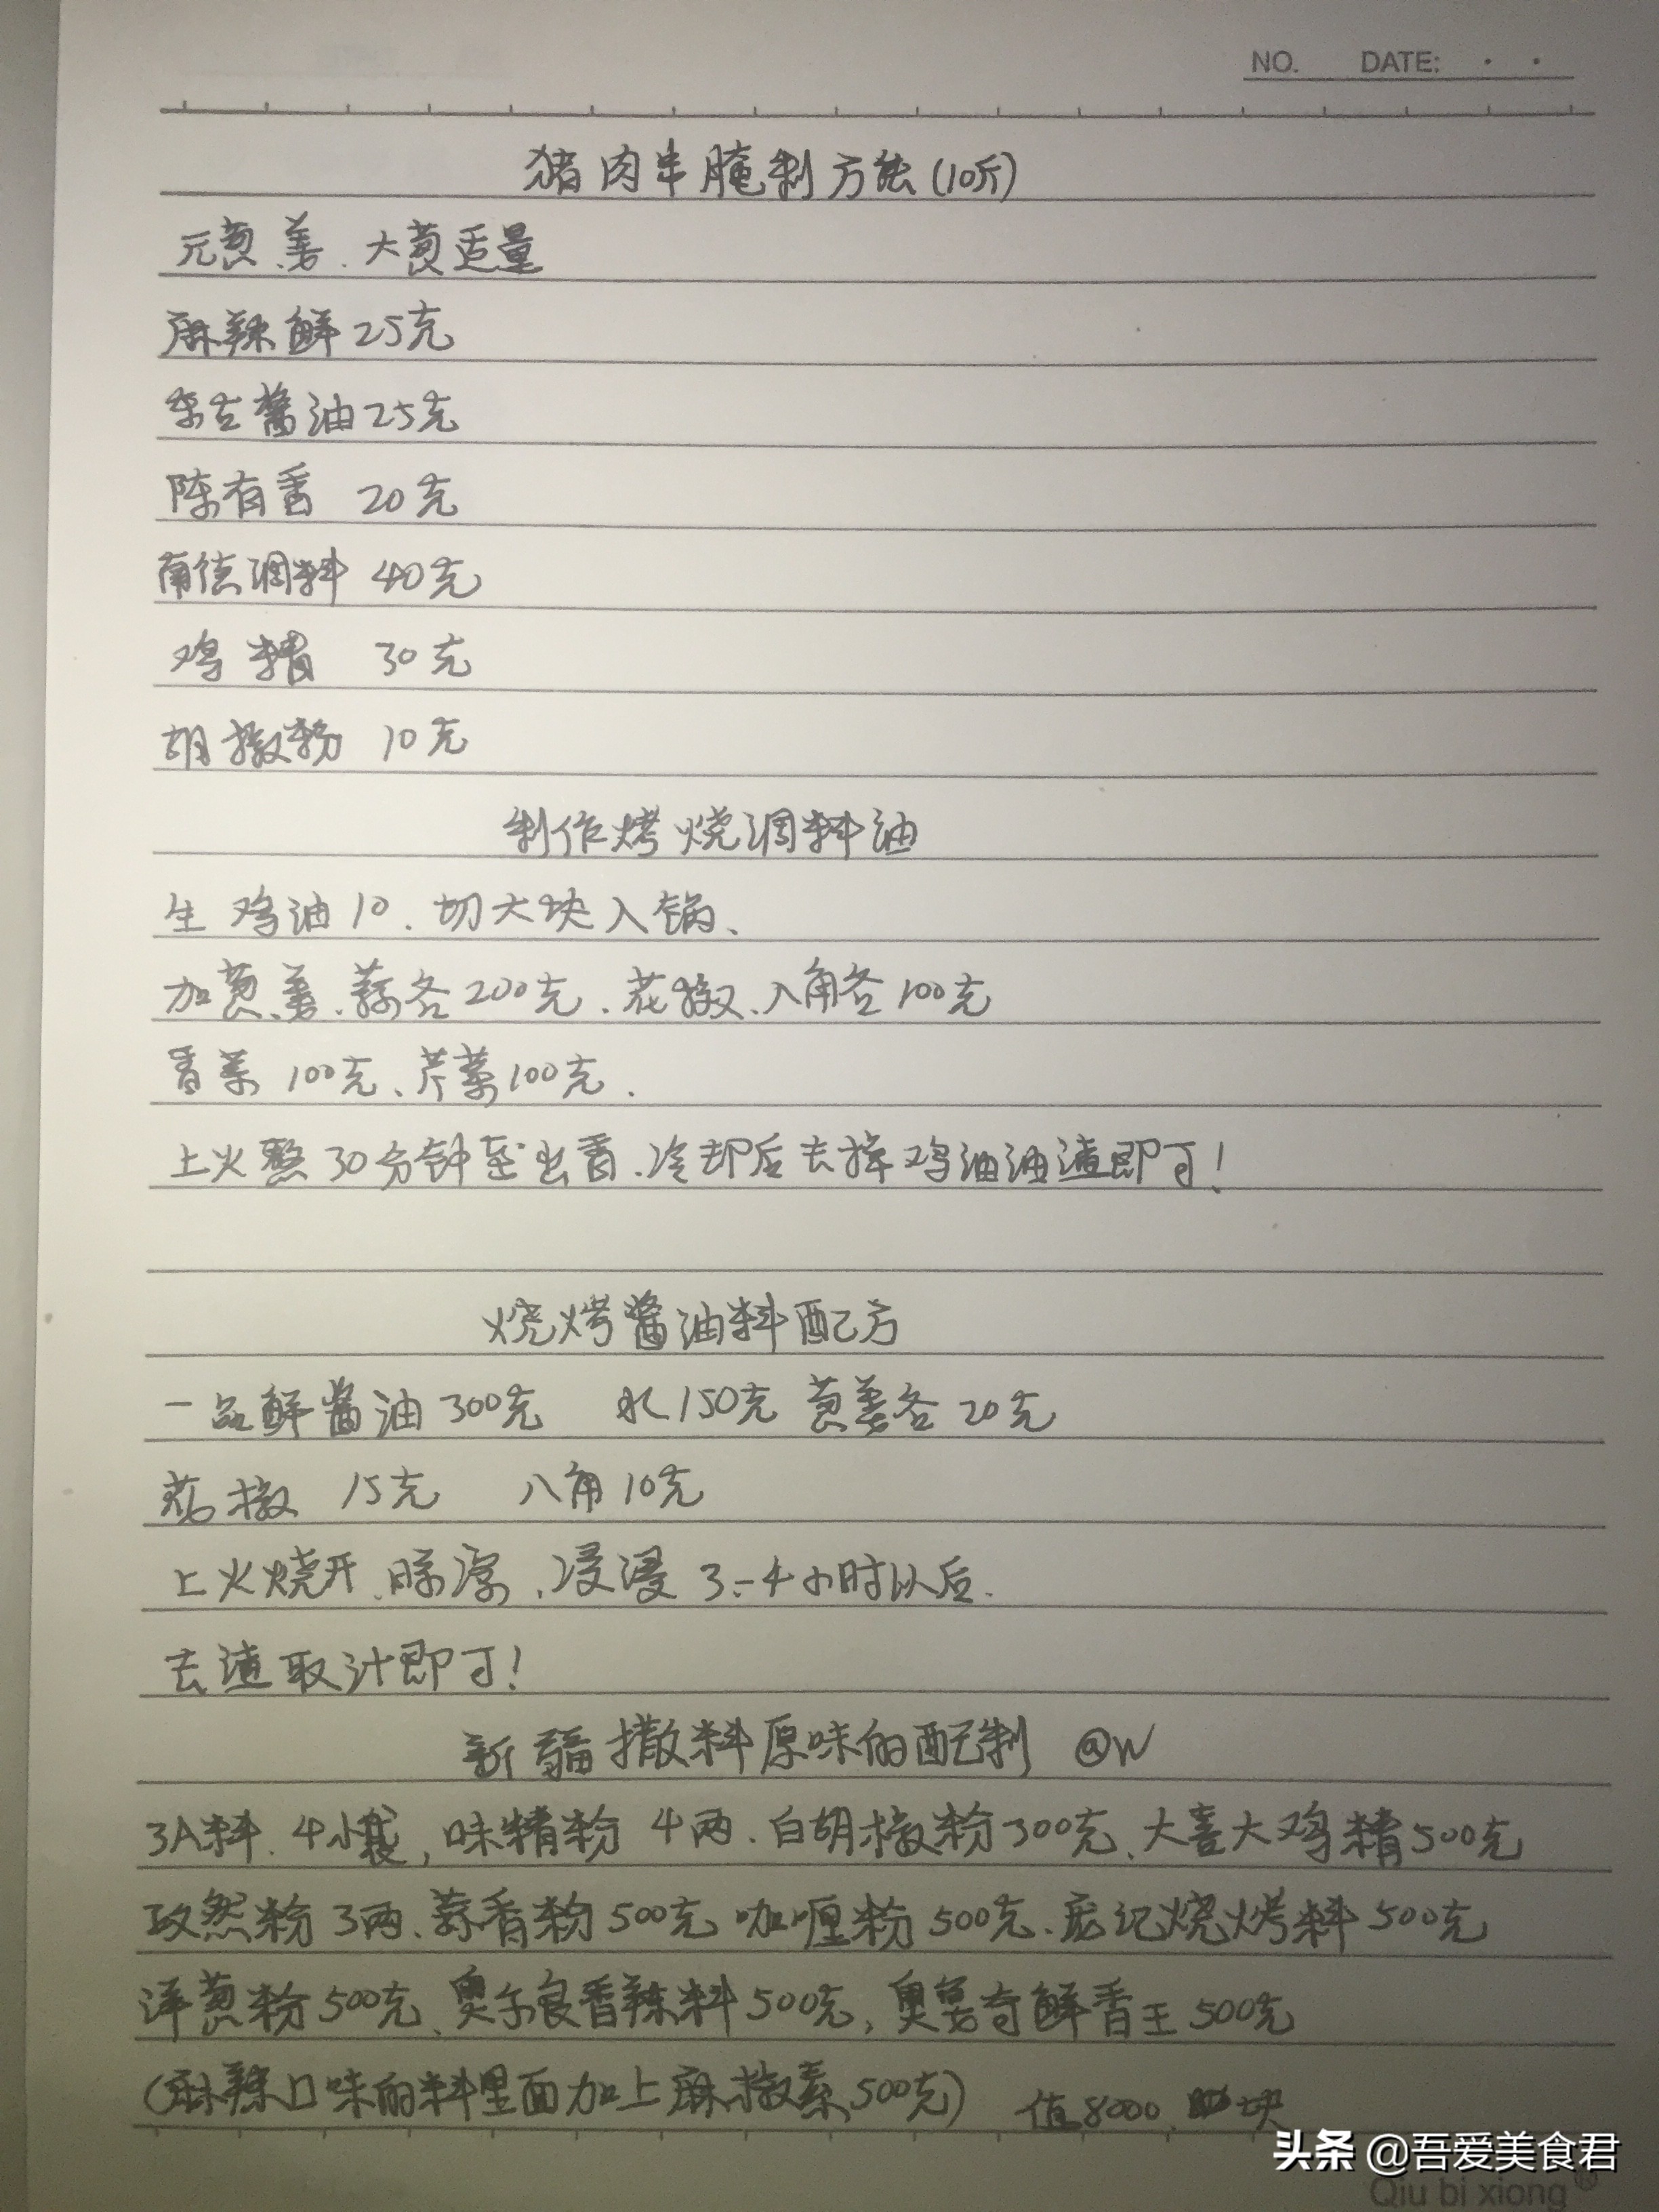 NO. DATE:
猪肉串腌制方法(10斤)
元葱、姜、大葱适量
麻辣鲜25克
东古酱油25克
陈有香 20克
南德调料 40克
鸡精 30克
胡椒粉 10克
制作烤烧调料油
生鸡油10、切大块入锅、
加葱、姜、蒜各200克、花椒、八角各100克
香菜100克、芹菜100克.
上火熬30分钟至出香、冷却后去掉鸡油油渣即可!
烧烤酱油料配方
一品鲜酱油300克 水150克 葱姜各20克
花椒 15克 八角10克
上火烧开、晾凉、浸浸3-4小时以后.
去渣取汁即可!
新疆撒料原味的配制 @W
3A料、4小袋,味精粉 4两、白胡椒粉300克、大喜大鸡精500克
孜然粉3两、蒜香粉500克 咖喱粉500克、庞记烧烤料500克
洋葱粉500克、奥尔良香辣料500克,奥芝奇鲜香王500克
(麻辣口味的料里面加上麻椒素500克) 值8000 块
头条 @吾爱美食君
Qiu bi xiong®